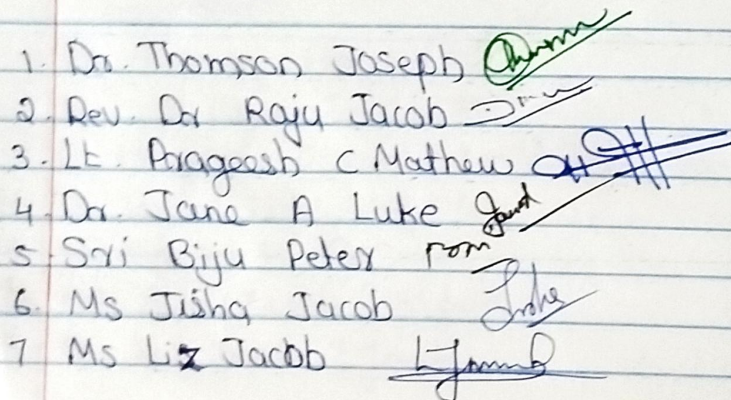 1. Dr. Thomson Joseph
2. Rev. Dr Raju Jacob
3. Lt. Parageesh C Mathew
4 Dr. Jane A Luke
5 Sri Biju Peter
6. Ms Jisha Jacob
7 Ms Liz Jacob